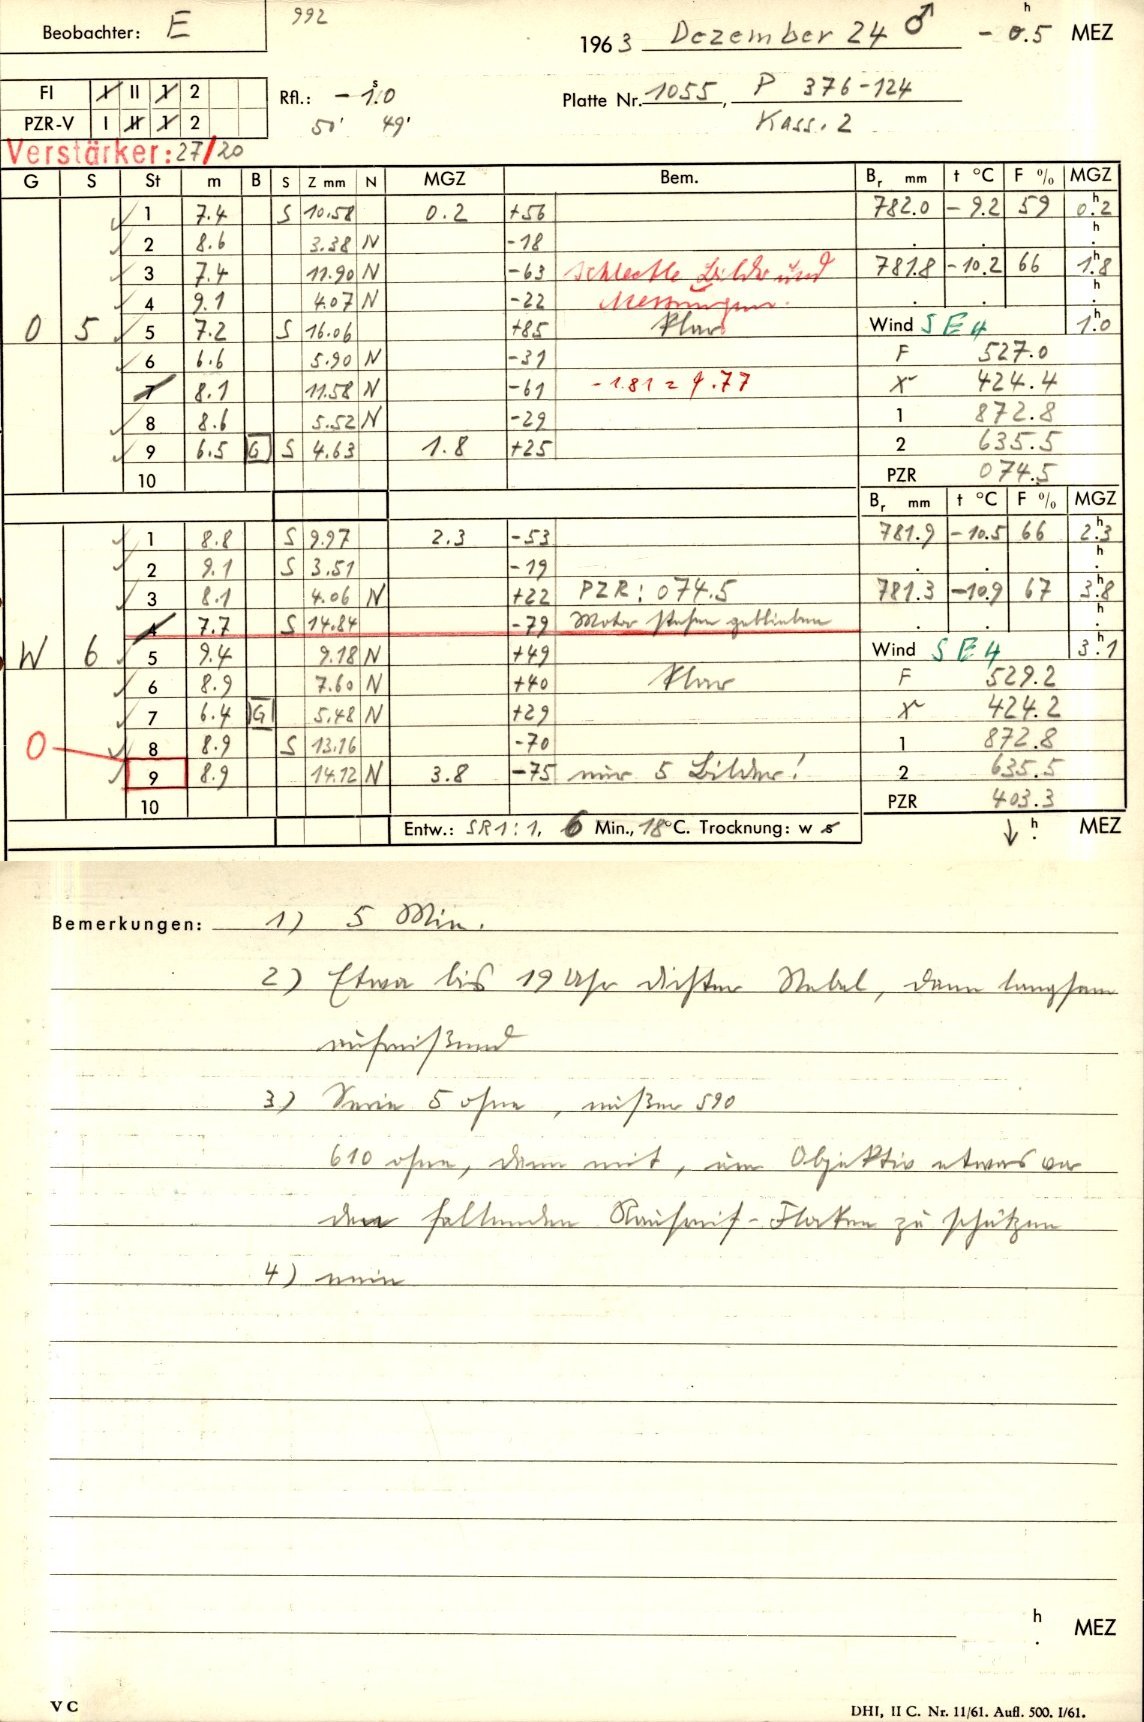 Beobachter: E
992
1963 Dezember 24 ♂ - 0.5 h MEZ
FI I II 1 2
PZR-V I II 1 2
Rfl.: - 1.0 s
50' 49'
Platte Nr. 1055, P 376-124
Kass. 2
Verstärker: 27/20
G S St m B S Z mm N MGZ Bem. Br mm t °C F % MGZ
1 7.4 S 10.58 0.2 +56 782.0 - 9.2 59 0.2 h
2 8.6 3.38 N -18 h
3 7.4 11.90 N -63 schlechte Bilder und 781.8 -10.2 66 1.8 h
4 9.1 4.07 N -22 Messungen. h
O 5 5 7.2 S 16.06 +85 klar Wind SE 4 1.0 h
6 6.6 5.90 N -31 F 527.0
7 8.1 11.58 N -61 -1.81 = 9.77 424.4
8 8.6 5.52 N -29 1 872.8
9 6.5 G S 4.63 1.8 +25 2 635.5
10 PZR 074.5
Br mm t °C F % MGZ
1 8.8 S 9.97 2.3 -53 781.9 -10.5 66 2.3 h
2 9.1 S 3.51 -19 h
3 8.1 4.06 N +22 PZR: 074.5 781.3 -10.9 67 3.8 h
4 7.7 S 14.84 -79 Motor stehen geblieben
W 6 5 9.4 9.18 N +49 Wind SE 4 3.1 h
6 8.9 7.60 N +40 klar F 529.2
7 6.4 G 5.48 N +29 424.2
O 8 8.9 S 13.16 -70 1 872.8
9 8.9 14.12 N 3.8 -75 nur 5 Bilder! 2 635.5
10 PZR 403.3
Entw.: SR1:1, 6 Min., 18°C. Trocknung: w s ↓ h MEZ
Bemerkungen: 1) 5 Min.
2) Etwa bis 19 Uhr dichter Nebel, dann langsam
aufreißend
3) Serie 5 ohne, außer 590
610 ohne, dann mit, um Objektiv etwas vor
den fallenden Rauhreif-Flocken zu schützen
4) nein
h MEZ
V C
DHI, II C. Nr. 11/61. Aufl. 500. I/61.